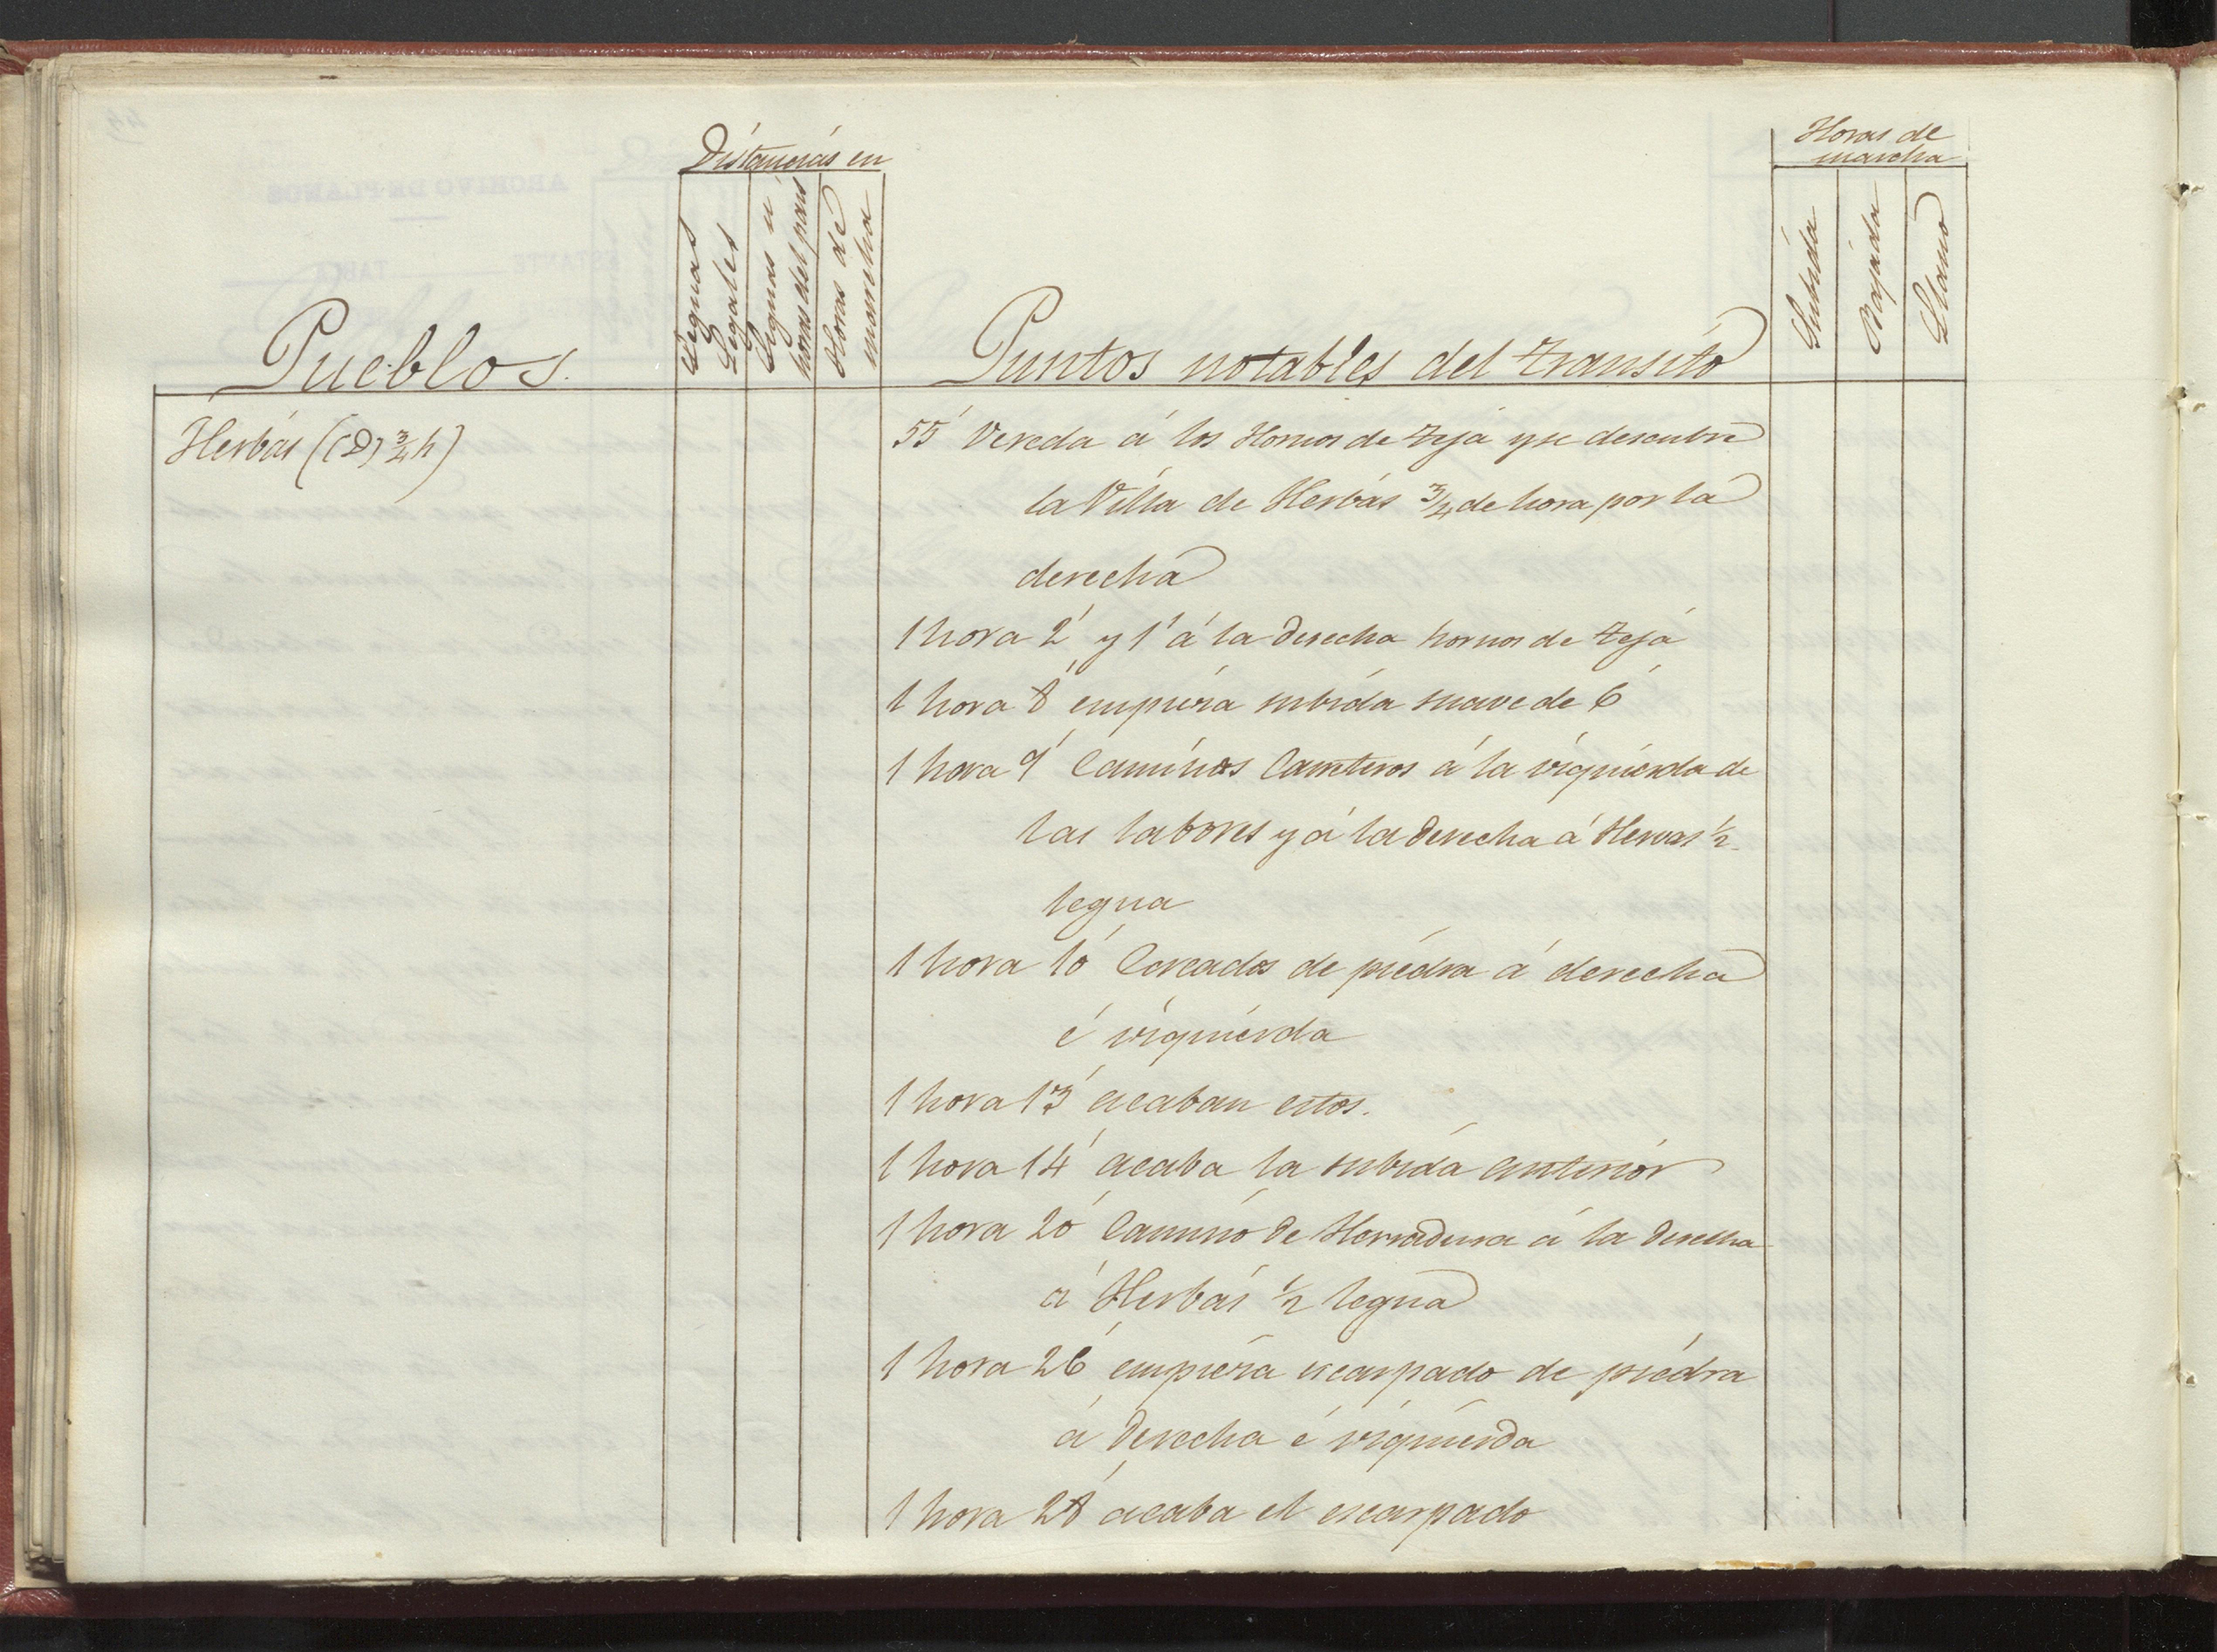 Distancias en
Horas de
marcha
Leguas
Legales
Leguas u
horas del pais
Horas de
marcha
Subida
Bajada
Llano
Pueblos.
Puntos notables del transito
Herbás ((D) 3/4 h)
55' Vereda á los Hornos de teja y se descubre
la Villa de Herbás 3/4 de hora por la
derecha
1 hora 2' y 1' á la derecha hornos de teja
1 hora 8' empieza subida suave de 6'
1 hora 9' Caminos Carreteros á la izquierda de
las labores y á la derecha á Hervas 1/2
legua
1 hora 10' Cercados de piedra á derecha
é izquierda
1 hora 13' acaban estos.
1 hora 14' acaba la subida anterior
1 hora 20' Camino de Herradura á la derecha
á Herbás 1/2 legua
1 hora 26' empieza escarpado de piedra
á derecha é izquierda
1 hora 28' acaba el escarpado